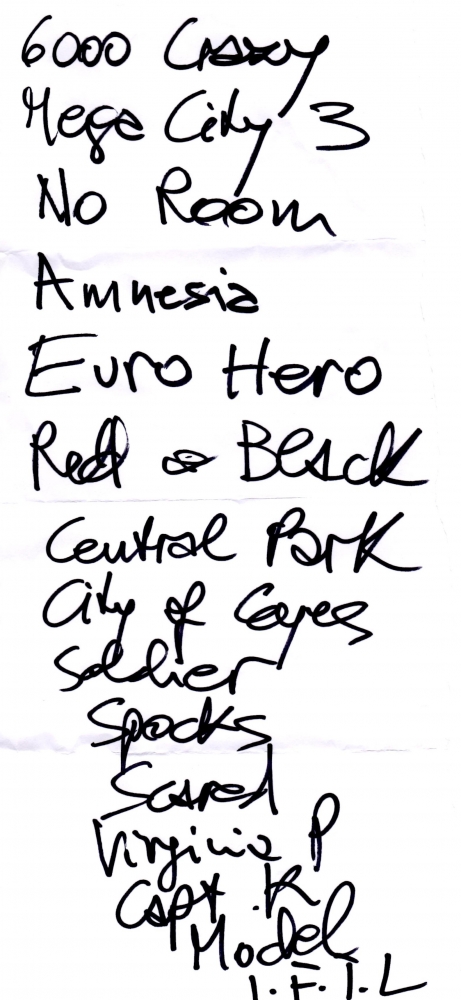 6000 Crazy
Mega City 3
No Room
Amnesia
Euro Hero
Red or Black
Central Park
City of Eyes
Soldier
Spocks
Scared
Virginia P
Capt. K
Model
I.F.I.L